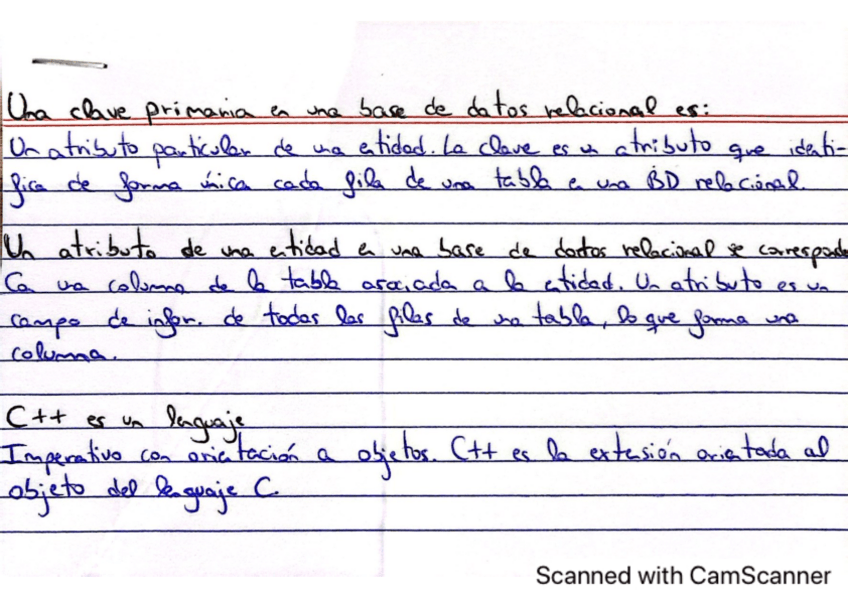 Una clave primaria en una base de datos relacional es:
Un atributo particular de una entidad. La clave es un atributo que identi-
fica de forma única cada fila de una tabla en una BD relacional.
Un atributo de una entidad en una base de datos relacional se corresponde
Con una columna de la tabla asociada a la entidad. Un atributo es un
campo de infor. de todas las filas de una tabla, lo que forma una
columna.
C++ es un lenguaje
Imperativo con orientación a objetos. C++ es la extensión orientada al
objeto del lenguaje C.
Scanned with CamScanner